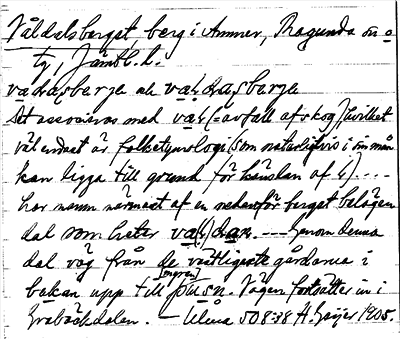 Våldalsberget, berg i Ammer, Ragunda
ty, Jämtl. l.
vadasberje ell. val dasberje
Det associeras med val (= avfall af skog), hvilket
väl endast är folketymologi (som naturligtvis i
kan ligga till grund för känslan af l) ....
har namn närmast af en nedanför berget belägen
dal som heter val dan. --- Genom denna
dal väg från de västligaste gårdarna i
byn upp till. Vägen fortsätter in i
dalen. — Ulma 508:38 H. Geijer 1905.